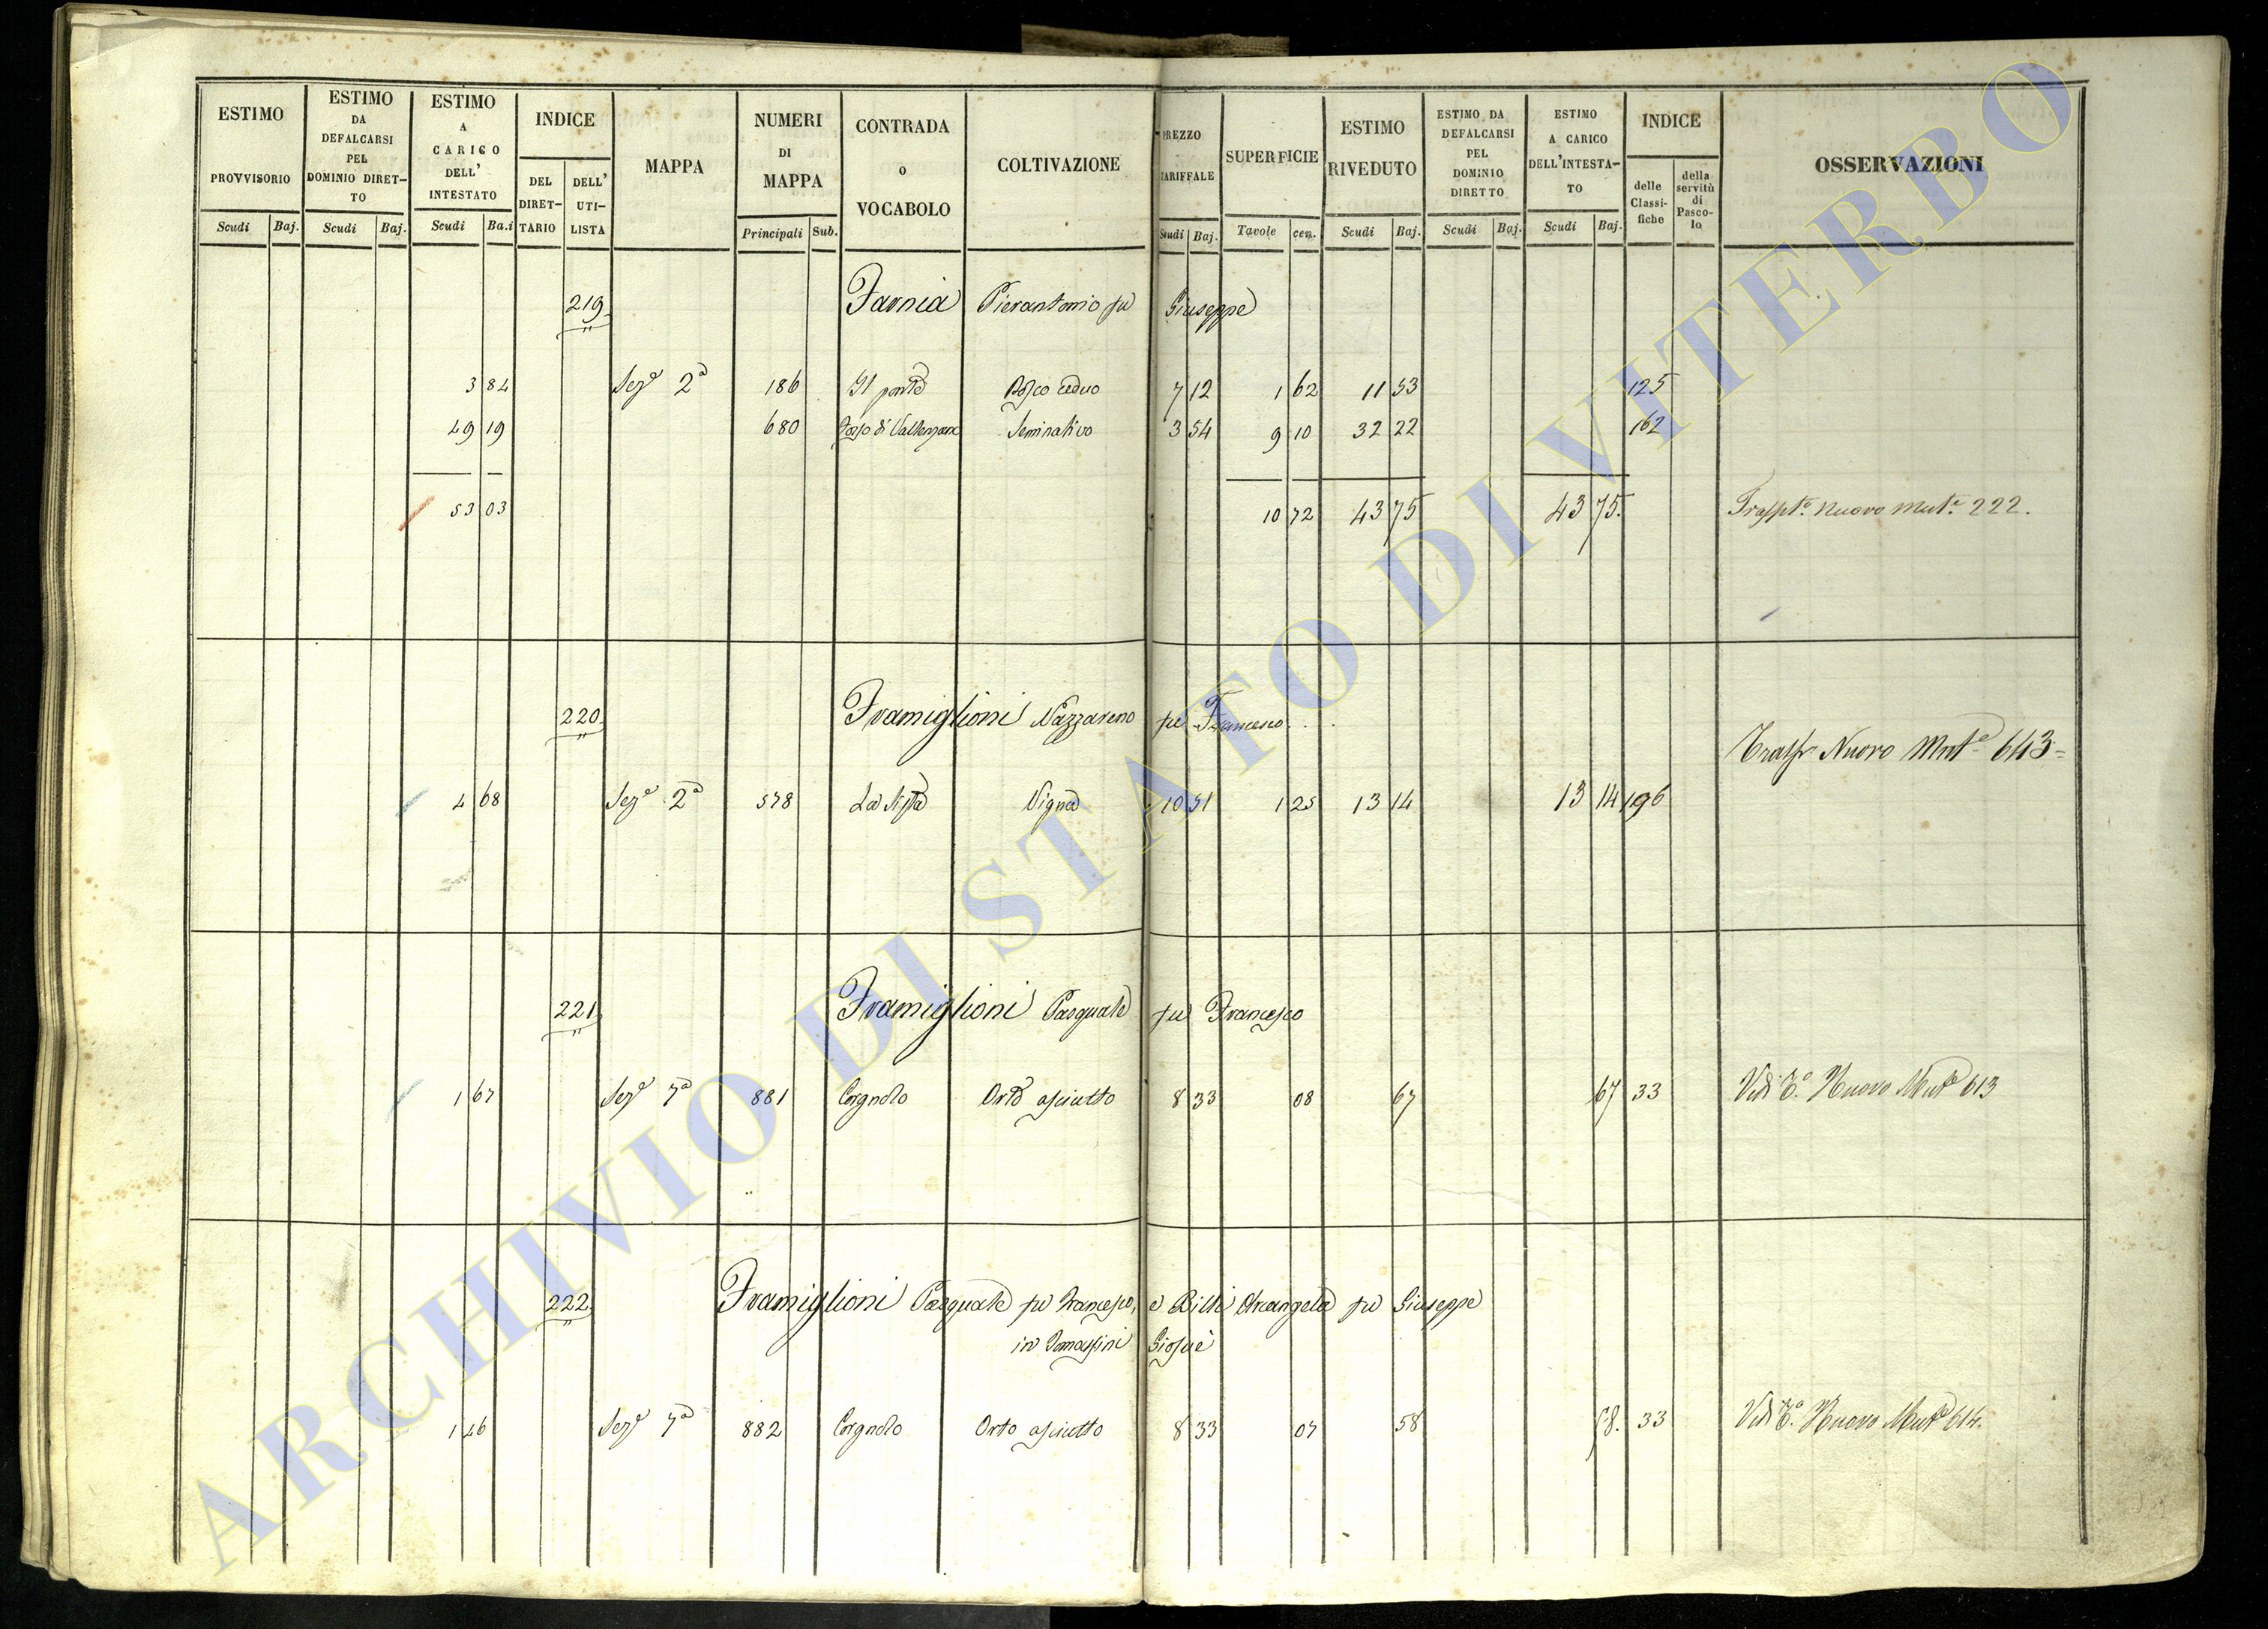 ESTIMO PROVVISORIO
ESTIMO DA DEFALCARSI PEL DOMINIO DIRETTO
ESTIMO A CARICO DELL' INTESTATO
INDICE
DEL DIRETTARIO
DELL' UTILISTA
MAPPA
NUMERI DI MAPPA
CONTRADA o VOCABOLO
COLTIVAZIONE
PREZZO TARIFFALE
SUPERFICIE
ESTIMO RIVEDUTO
ESTIMO DA DEFALCARSI PEL DOMINIO DIRETTO
ESTIMO A CARICO DELL'INTESTATO
INDICE
delle Classifiche
della servitù di Pascolo
OSSERVAZIONI
Scudi Baj. Scudi Baj. Scudi Ba.i Principali Sub. Scudi Baj. Tavole cen. Scudi Baj. Scudi Baj. Scudi Baj.
219 Farnia Pierantonio fu Giuseppe
3 84 Sezᵉ 2ᵃ 186 Il ponte Bosco ceduo 7 12 1 62 11 53 125
49 19 680 Seminativo 3 54 9 10 32 22 162
53 03 10 72 43 75 43 75. Nuovo Mutᵉ 222.
220 Framiglioni Nazzareno fu Francesco
Nuovo Mutᵉ 643
4 68 Sezᵉ 2ᵃ 578 Vigna 10 51 1 25 13 14 13 14 196
221 Framiglioni Pasquale fu Francesco
1 67 Sezᵉ 7ᵃ 881 Corgnolo Orto asciutto 8 33 08 67 67 33 Vedi Nuovo Mutᵉ 613
222 Framiglioni Pasquale fu Francesco, e Billi Arcangela fu Giuseppe
in Tomassini Giosuè
1 46 Sezᵉ 7ᵃ 882 Corgnolo Orto asciutto 8 33 07 58 58. 33 Vedi Nuovo Mutᵉ 614.
ARCHIVIO DI STATO DI VITERBO